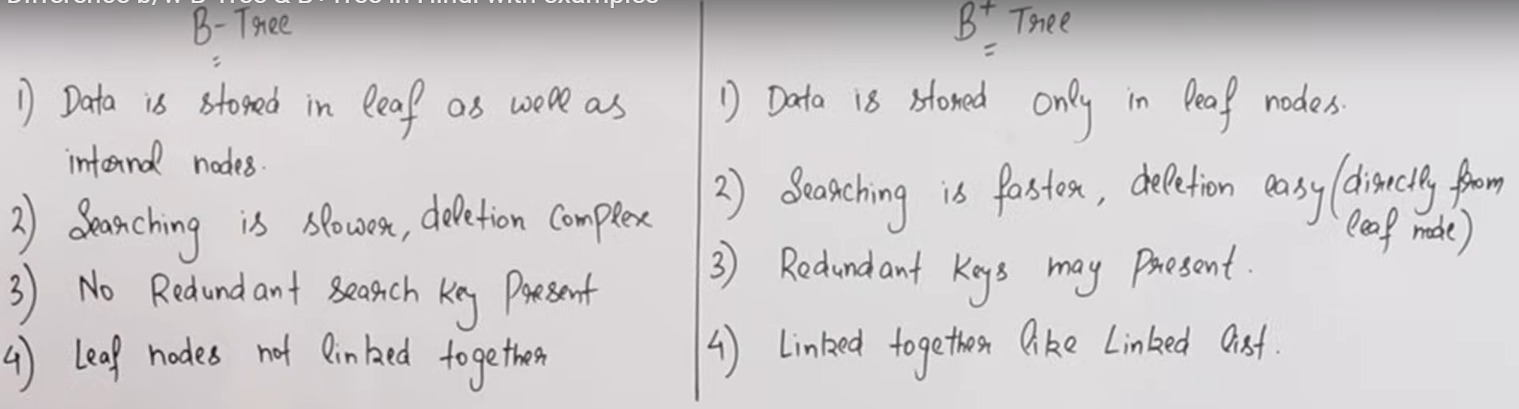 Difference b/w B-Tree & B+Tree in Hindi with examples
B-Tree
1) Data is stored in leaf as well as
internal nodes.
2) Searching is slower, deletion complex
3) No Redundant search key Present
4) Leaf nodes not linked together
B+ Tree
1) Data is stored only in leaf nodes.
2) Searching is faster, deletion easy (directly from
leaf node)
3) Redundant keys may Present.
4) Linked together like Linked list.